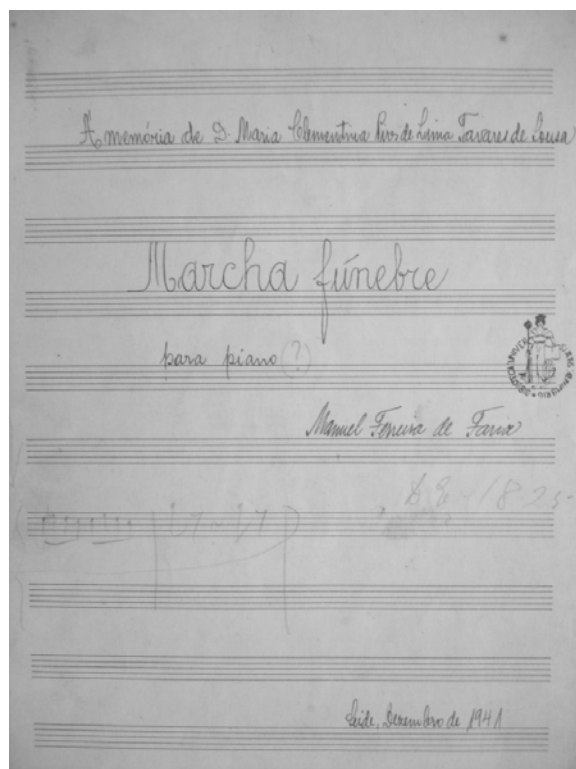 Á memória de D. Maria Clementina Pires de Lima Tavares de Sousa
Marcha fúnebre
para piano (?)
Manuel Ferreira de Faria
Seide, Dezembro de 1941